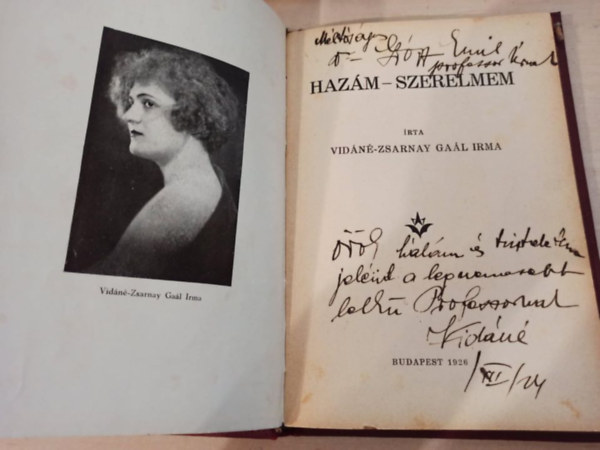 Vidáné-Zsarnay Gaál Irma
Méltóságos
Emil
professor Úrnak
HAZÁM – SZERELMEM
ÍRTA
VIDÁNÉ-ZSARNAY GAÁL IRMA
örök hálám és tiszteletem
jeléül a legnemesebb
lelkű Professornak
Vidáné
BUDAPEST 1926